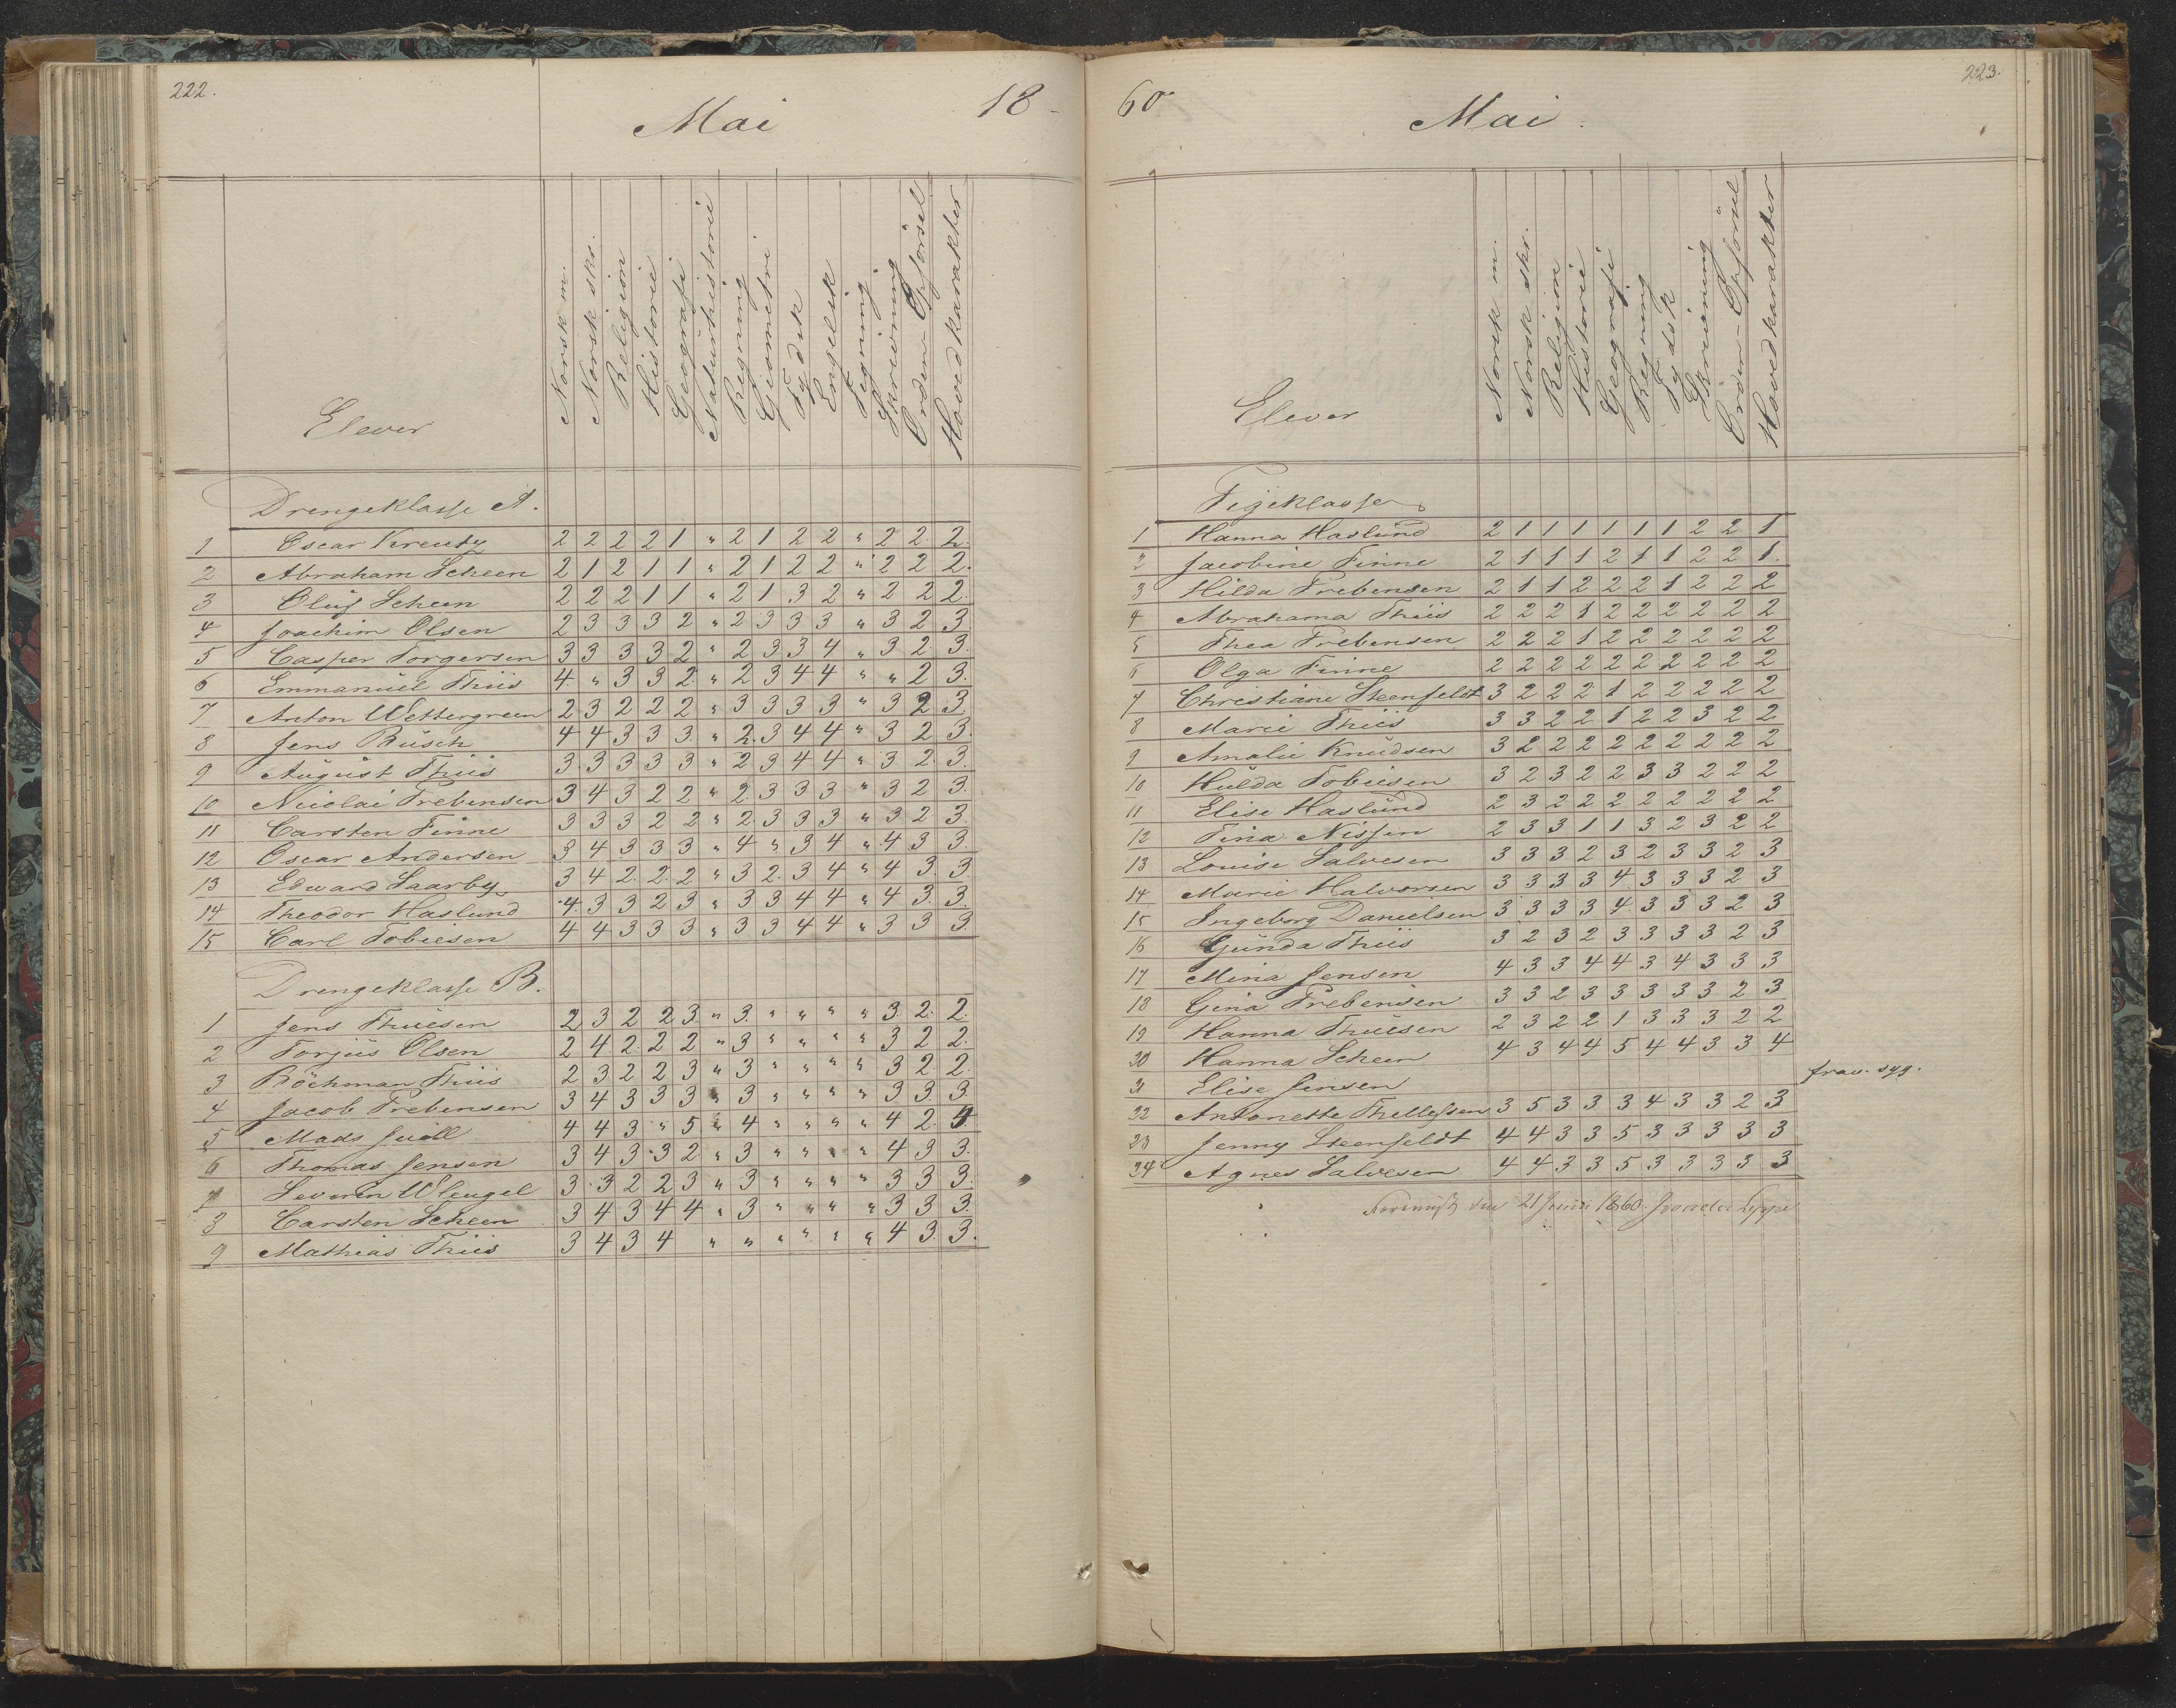 222.
Mai
18-
Elever
Norsk m.
Norsk skr.
Religion
Historie
Geografi
Naturhistorie
Regning
Geometri
Tydsk
Engelsk
Tegning
Skrivning
Orden-Opförsel
Hovedkarakter
Drengeklasse A.
1 Oscar Kreutz 2 2 2 2 1 " 2 1 2 2 " 2 2. 2.
2 Abraham Scheen 2 1 2 1 1 " 2 1 2 2 " 2 2 2.
3 Oluf Scheen 2 2 2 1 1 " 2 1 3 2 " 2 2 2.
4 Joachim Olsen 2 3 3 3 2 " 2 3 3 3 " 3 2 3.
5 Casper Torgersen 3 3 3 3 2 " 2 3 3 4 " 3 2. 3.
6 Emmanuel Thiis 4. " 3 3 2 " 2 3 4 4 " " 2 3.
7 Anton Wettergreen 2 3 2 2 2 " 3 3 3 3 " 3 2 3.
8 Jens Busch 4 4 3 3 3 " 2. 3 4 4 " 3 2 3.
9 August Thiis 3. 3 3 3 3 " 2 3 4 4 " 3 2. 3.
10 Nicolai Trebensen 3 4 3 2 2 " 2. 3 3 3 " 3 2 3.
11 Carsten Finne 3 3 3 2 2 " 2. 3 3 3 " 3 2 3.
12 Oscar Andersen 3 4 3 3 3 " 4 " 3 4 " 4 3 3.
13 Edward Saarby 3 4 2. 2. 2 " 3 2. 3 4 " 4 3. 3.
14 Theodor Haslund 4. 3 3 2 3 " 3 3 4 4 " 4 3. 3.
15 Carl Tobiesen 4 4 3 3 3 " 3 3 4 4 " 3 3 3.
Drengeklasse B.
1 Jens Thuesen 2 3 2 2 3 " 3. " " " " 3. 2. 2.
2 Torjus Olsen 2 4 2. 2 2 " 3 " " " " 3 2 2.
3 Böckman Thiis 2 3 2 2 3 " 3 " " " " 3 2 2.
4 Jacob Trebensen 3 4 3 3 3 " 3 " " " " 3 3. 3.
5 Mads Juell 4 4 3 " 5 " 4 " " " " 4 2. 4.
6 Thomas Jensen 3 4 3 3 2 " 3 " " " " 4 3 3.
7 Severin Wleugel 3. 3 2 2 3 " 3 " " " " 3 3 3.
8 Carsten Scheen 3 4 3 4 4 " 3 " " " " 3 3 3.
9 Mathias Thiis 3 4 3 4 " " " " " " 4 3. 3.
60
Mai.
223.
Elever
Norsk m.
Norsk skr.
Religion
Historie
Geografi
Regning
Tydsk
Skrivning
Orden-Opförsel
Hovedkarakter
Pigeklasse
1 Hanna Haslund 2 1 1 1 1 1 1 2 2 1
2 Jacobine Finne 2 1 1 1 2 1 1 2 2 1.
3 Hilda Trebensen 2 1 1 2 2 2 1 2 2 2
4 Abrahama Thiis 2 2 2 1 2 2 2 2 2 2
5 Thea Trebensen 2 2 2 1 2 2 2 2 2 2
6 Olga Finne 2 2 2 2 2 2 2 2 2 2
7 Christiane Steenfeldt 3 2 2 2 1 2 2 2 2 2
8 Marie Thiis 3 3 2 2 1 2 2 3 2 2
9 Amalie Knudsen 3 2 2 2 2 2 2 2 2 2
10 Hulda Tobiesen 3 2 3 2 2 3 3 2 2 2
11 Elise Haslund 2 3 2 2 2 2 2 2 2 2
12 Tina Nissen 2 3 3 1 1 3 2 3 2 2
13 Louise Salvesen 3 3 3 2 3 2 3 3 2 3
14 Marie Halvorsen 3 3 3 3 4 3 3 3 2 3
15 Ingeborg Danielsen 3 3 3 3 4 3 3 3 2 3
16 Gunda Thiis 3 2 3 2 3 3 3 3 2 3
17 Mina Jensen 4 3 3 4 4 3 4 3 3 3
18 Gina Trebensen 3 3 2 3 3 3 3 3 2 3
19 Hanna Thuesen 2 3 2 2 1 3 3 3 2 2
20 Hanna Scheen 4 3 4 4 5 4 4 3 3 4
21 Elise Jensen frav. syg.
22 Antonette Thellefsen 3 5 3 3 3 4 3 3 2 3
23 Jenny Steenfeldt 4 4 3 3 5 3 3 3 3 3
24 Agnes Salvesen 4 4 3 3 5 3 3 3 3 3
den 21 Juni 1860.